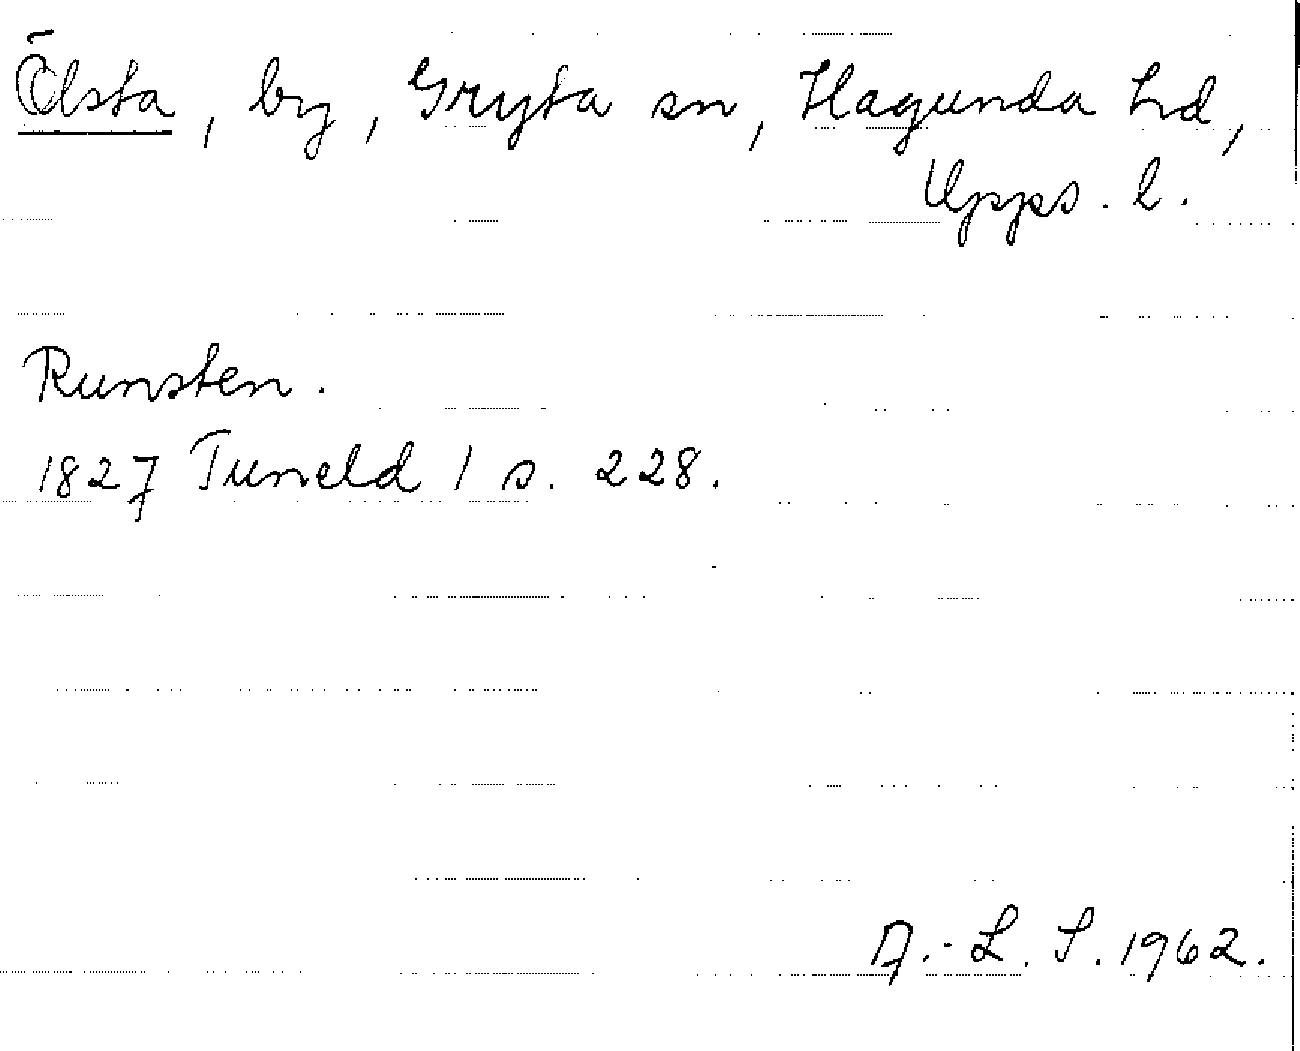 Ölsta, by, Gryta sn, Hagunda hd,
Upps. l.
Runsten.
1827 Tuneld 1 s. 228.
A.-L. S. 1962.